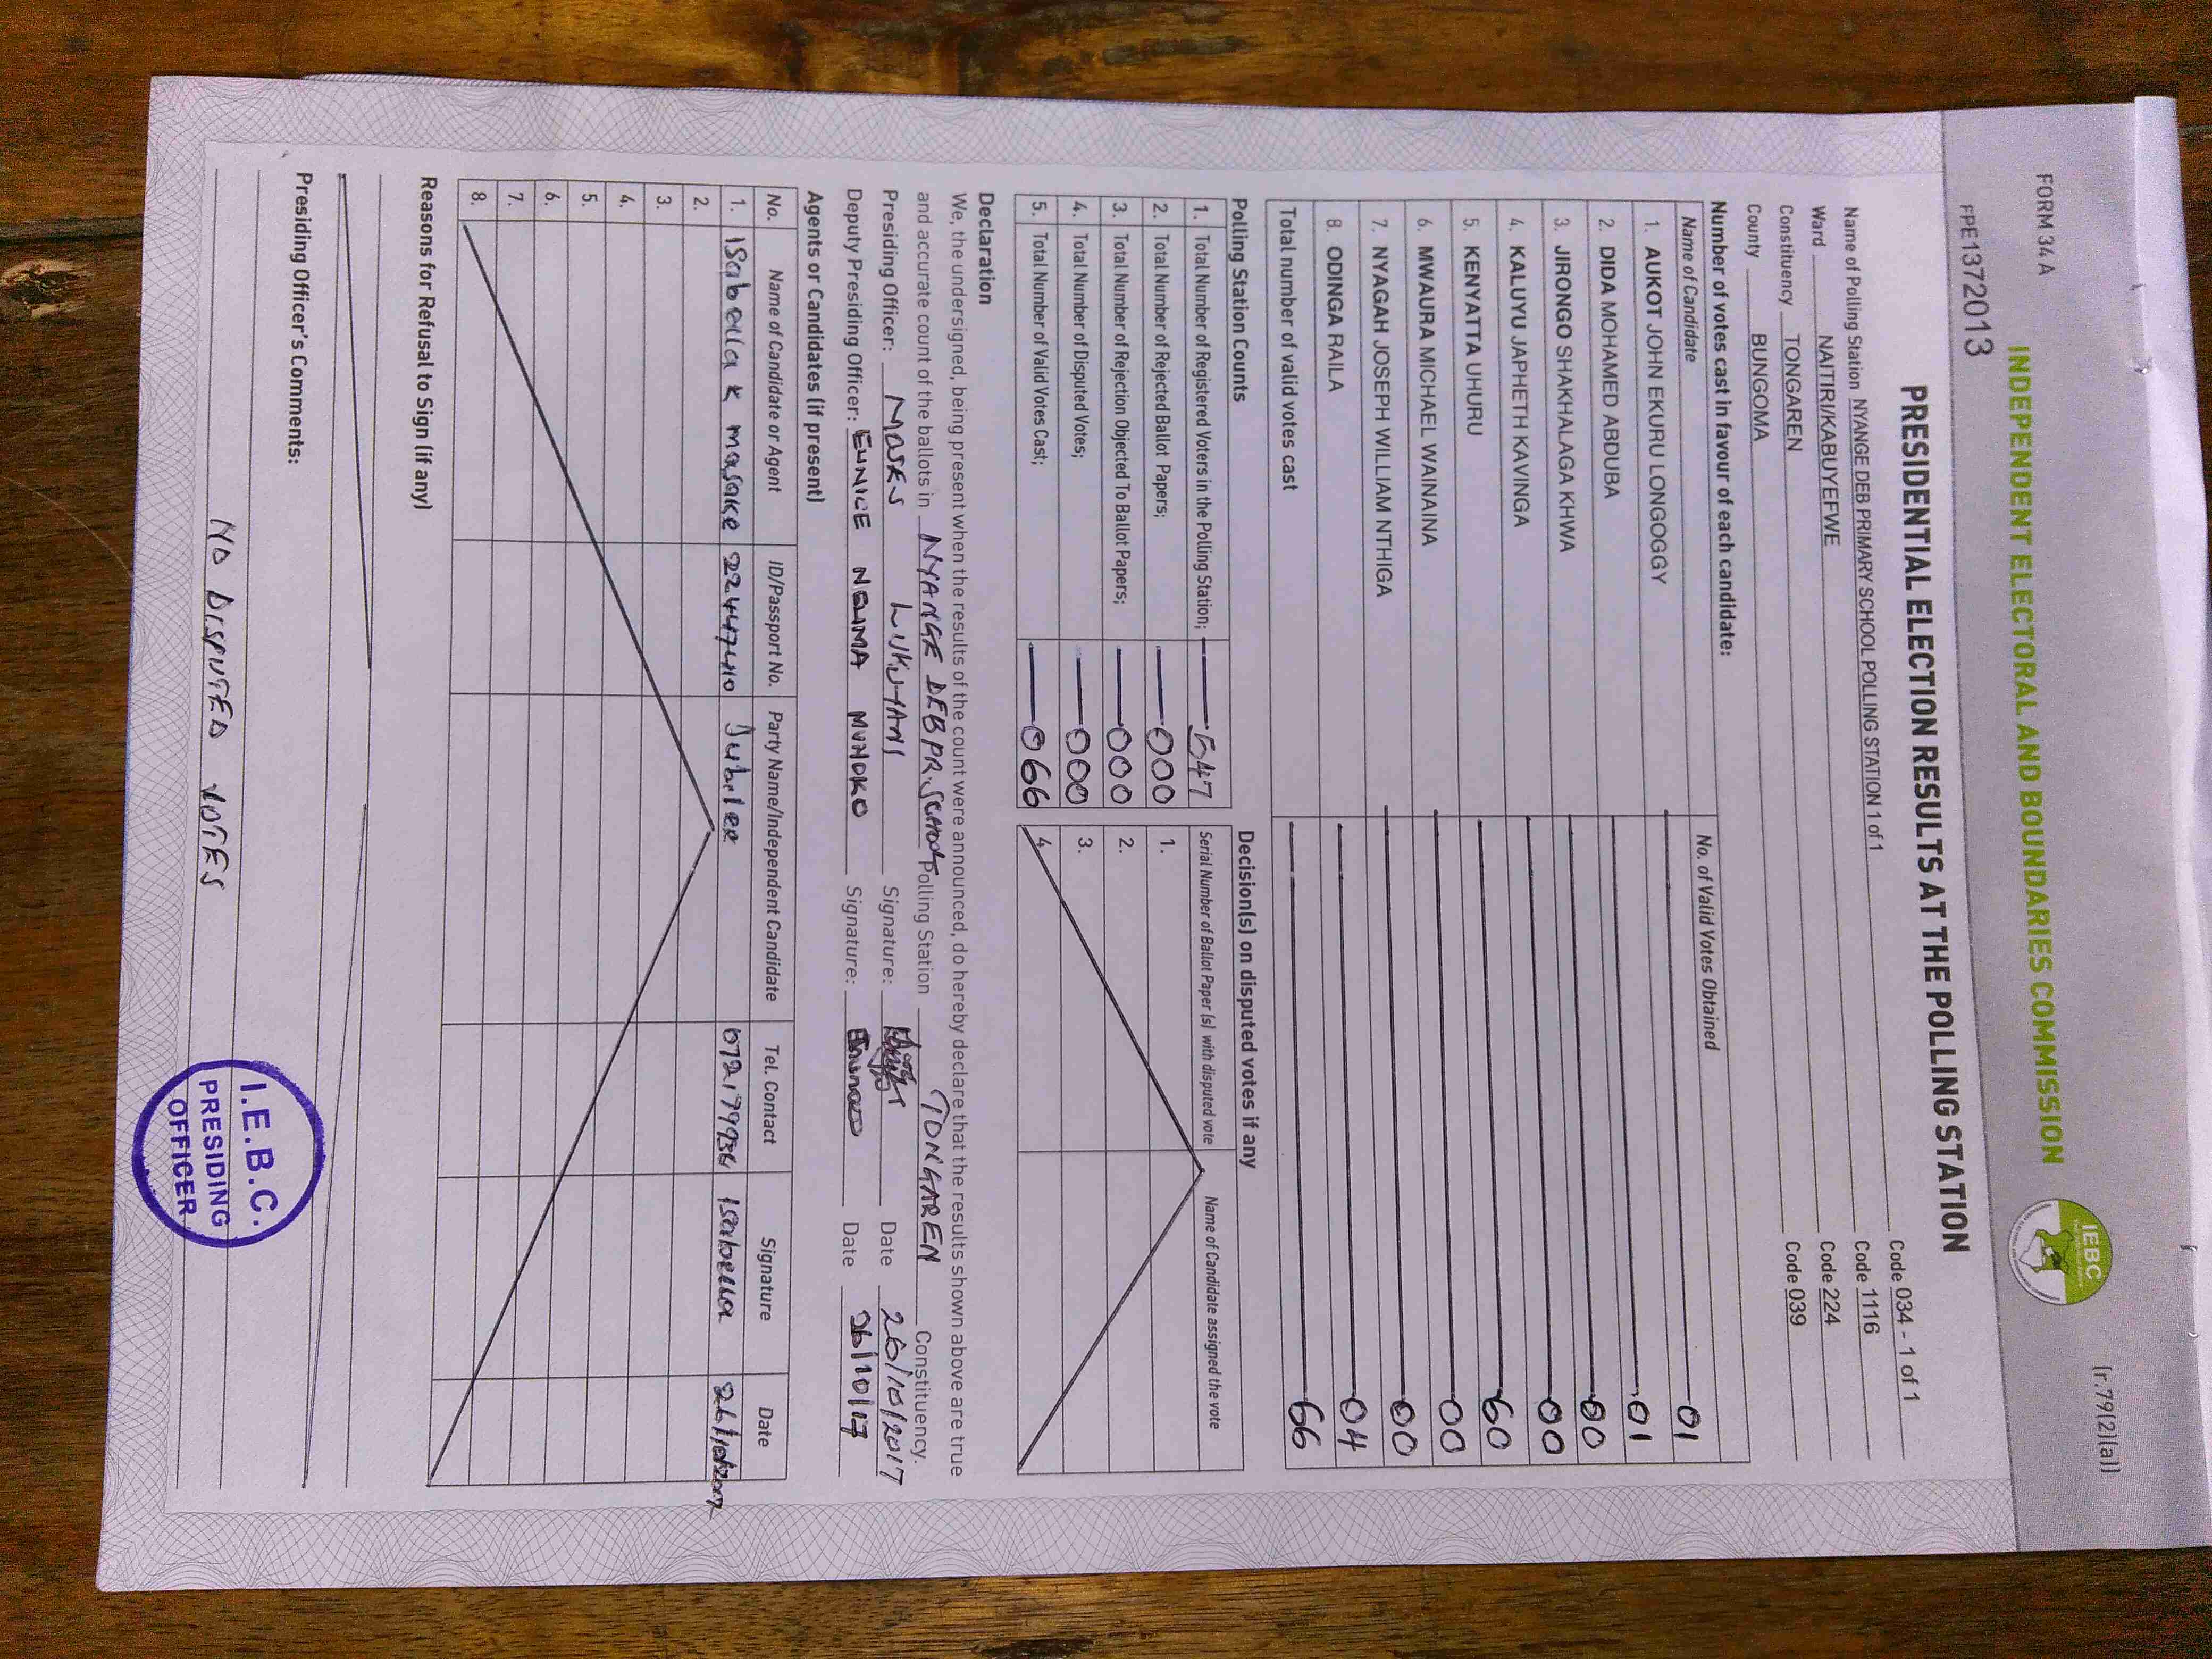 FORM 34 A
[r.79(2)(a)]
INDEPENDENT ELECTORAL AND BOUNDARIES COMMISSION
IEBC
FPE1372013
PRESIDENTIAL ELECTION RESULTS AT THE POLLING STATION
Name of Polling Station NYANGE DEB PRIMARY SCHOOL POLLING STATION 1 of 1 Code 034 - 1 of 1
Ward NAITIRI/KABUYEFWE Code 1116
Constituency TONGAREN Code 224
County BUNGOMA Code 039
Number of votes cast in favour of each candidate:
Name of Candidate No. of Valid Votes Obtained
1. AUKOT JOHN EKURU LONGOGGY 01
2. DIDA MOHAMED ABDUBA 01
3. JIRONGO SHAKHALAGA KHWA 00
4. KALUYU JAPHETH KAVINGA 00
5. KENYATTA UHURU 60
6. MWAURA MICHAEL WAINAINA 00
7. NYAGAH JOSEPH WILLIAM NTHIGA 00
8. ODINGA RAILA 04
Total number of valid votes cast 66
Polling Station Counts
1. Total Number of Registered Voters in the Polling Station; 547
2. Total Number of Rejected Ballot Papers; 000
3. Total Number of Rejection Objected To Ballot Papers; 000
4. Total Number of Disputed Votes; 000
5. Total Number of Valid Votes Cast; 066
Decision(s) on disputed votes if any
Serial Number of Ballot Paper (s) with disputed vote Name of Candidate assigned the vote
1.
2.
3.
4.
Declaration
We, the undersigned, being present when the results of the count were announced, do hereby declare that the results shown above are true
and accurate count of the ballots in NYANGE DEB PR. SCHOOL Polling Station TONGAREN Constituency.
Presiding Officer: MOSES LUKUYANI Signature: Date 26/10/2017
Deputy Presiding Officer: EUNICE NELIMA MUNOKO Signature: Date 26/10/17
Agents or Candidates (if present)
No. Name of Candidate or Agent ID/Passport No. Party Name/Independent Candidate Tel. Contact Signature Date
1. Isabella K masake 22447440 Jubilee Isabella 26/10/2017
2.
3.
4.
5.
6.
7.
8.
Reasons for Refusal to Sign (if any)
Presiding Officer's Comments:
NO DISPUTED VOTES
I.E.B.C.
PRESIDING
OFFICER